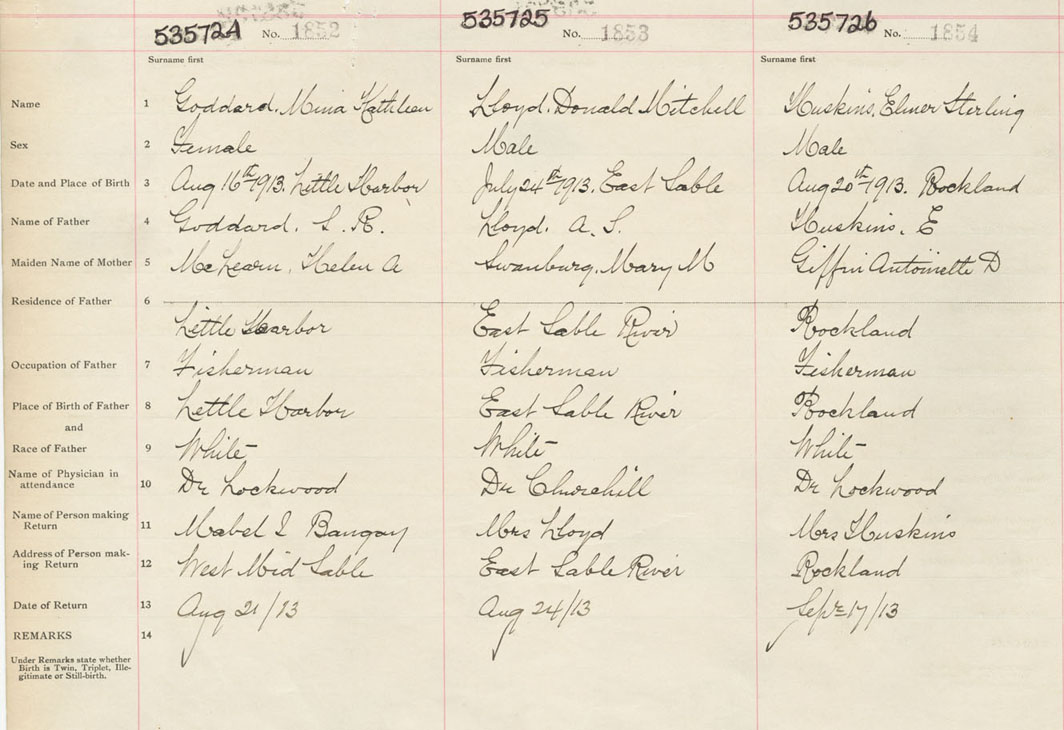 535724 No. 1852 535725 No. 1853 535726 No. 1854
Surname first Surname first Surname first
Name 1 Goddard. Mina Kathleen Lloyd. Donald Mitchell Huskins. Elmer Sterling
Sex 2 Female Male Male
Date and Place of Birth 3 Aug 16th 1913. Little Harbor July 24th 1913. East Sable Aug 20th 1913. Rockland
Name of Father 4 Goddard. S. R. Lloyd. A. S. Huskins. E
Maiden Name of Mother 5 McLearn. Helen A Swanburg. Mary M Giffin Antoinette D
Residence of Father 6
Little Harbor East Sable River Rockland
Occupation of Father 7 Fisherman Fisherman Fisherman
Place of Birth of Father 8 Little Harbor East Sable River Rockland
and
Race of Father 9 White White White
Name of Physician in
attendance 10 Dr Lockwood Dr Churchill Dr Lockwood
Name of Person making
Return 11 Mabel I Bangay Mrs Lloyd Mrs Huskins
Address of Person mak-
ing Return 12 West Mid Sable East Sable River Rockland
Date of Return 13 Aug 21/13 Aug 24/13 Sept 17/13
REMARKS 14
Under Remarks state whether
Birth is Twin, Triplet, Ille-
gitimate or Still-birth.